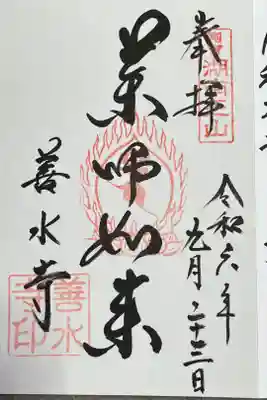 奉拝
令和六年
九月二十三日
薬師如来
善水寺
善水
寺印